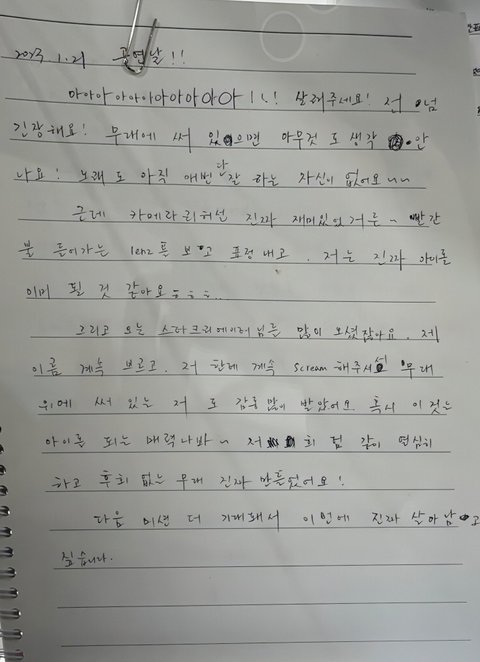 2023.1.21 공연날!!
아아아아아아아아아아아!!! 살려주세요! 전 넘
긴장해요! 무래에 써 있으면 아무것 도 생각 안
나요! 노래 도 아직 매번 난 잘 하는 자신이 없어요~~
근데 카메라리허선 진짜 재미있었거른~ 빨간
불 들어가는 lenz 른 보고 표정 내고. 저는 진짜 아이돌
이미 될 것 같아요 ㅎㅎㅎ...
그리고 오늘 스타크리에이터님른 많이 오셨잖아요. 제
이름 계속 부르고. 저 한테 계속 scream 해주셔서 무래
위에 써 있는 저 도 감동 많이 받았어요. 혹시 이 것은
아이돌 되는 매력나봐~ 저희 텀 같이 열심히
하고 후회 없는 무래 진짜 만든었어요!
다음 미션 더 기대해서 이번에 진짜 살아남고
싶습니다.